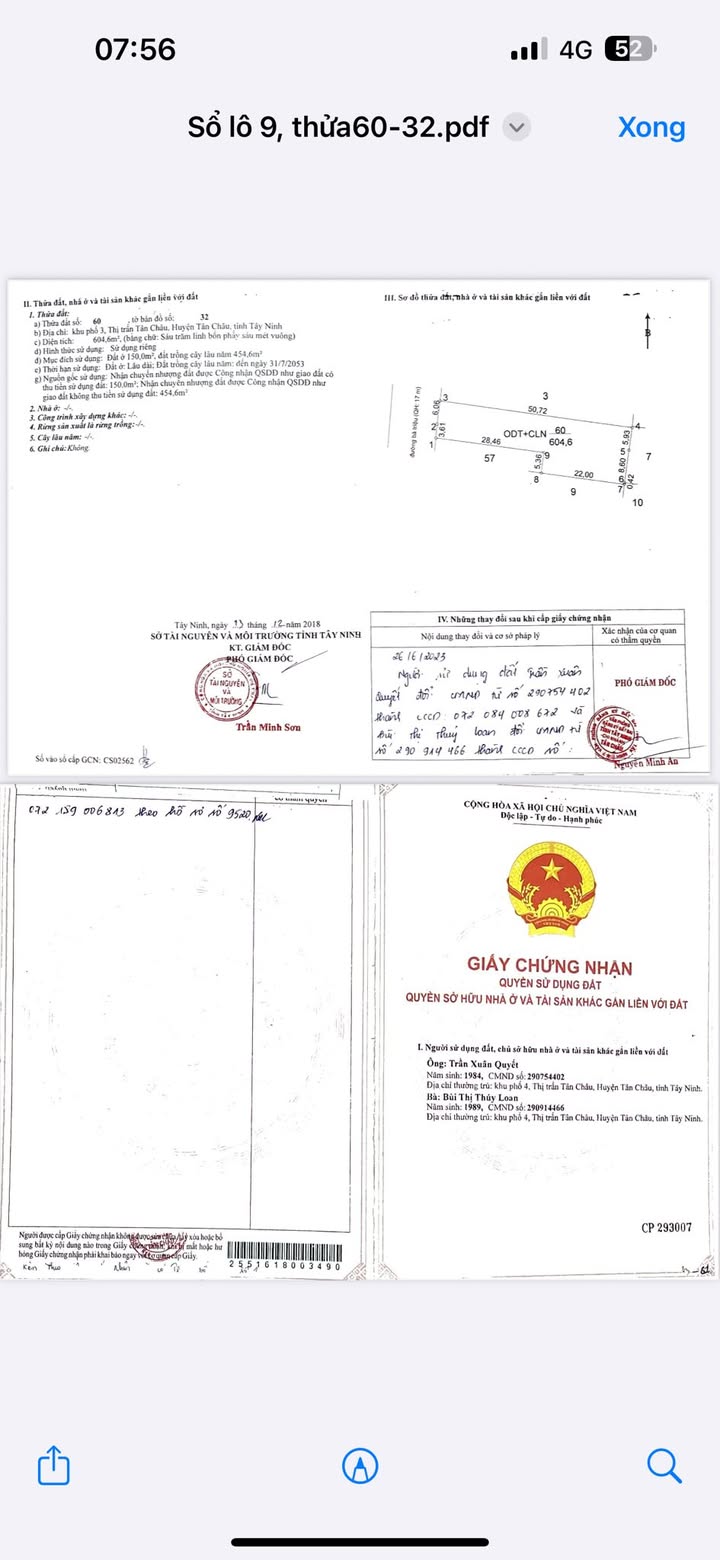 07:56
4G 52
Sổ lô 9, thửa60-32.pdf
Xong
II. Thửa đất, nhà ở và tài sản khác gắn liền với đất
1. Thửa đất:
a) Thửa đất số: 60 , tờ bản đồ số: 32
b) Địa chỉ: khu phố 3, Thị trấn Tân Châu, Huyện Tân Châu, tỉnh Tây Ninh
c) Diện tích: 604,6m², (bằng chữ: Sáu trăm linh bốn phẩy sáu mét vuông)
d) Hình thức sử dụng: Sử dụng riêng
đ) Mục đích sử dụng: Đất ở 150,0m², đất trồng cây lâu năm 454,6m²
e) Thời hạn sử dụng: Đất ở: Lâu dài; Đất trồng cây lâu năm: đến ngày 31/7/2053
g) Nguồn gốc sử dụng: Nhận chuyển nhượng đất được Công nhận QSDĐ như giao đất có
thu tiền sử dụng đất: 150.0m²; Nhận chuyển nhượng đất được Công nhận QSDĐ như
giao đất không thu tiền sử dụng đất: 454,6m²
2. Nhà ở: -/-.
3. Công trình xây dựng khác: -/-.
4. Rừng sản xuất là rừng trồng:-/-.
5. Cây lâu năm: -/-.
6. Ghi chú:Không.
III. Sơ đồ thửa đất, nhà ở và tài sản khác gắn liền với đất
B
đường hà triệu (QH: 17 m)
3
3
50,72
6,06
2
3,61
1
28,46
ODT+CLN
60
604,6
4
5,93
5
7
57
5,36
9
8,60
22,00
6
8
9
7
0,42
10
Tây Ninh, ngày 13 tháng 12 năm 2018
SỞ TÀI NGUYÊN VÀ MÔI TRƯỜNG TỈNH TÂY NINH
KT. GIÁM ĐỐC
PHÓ GIÁM ĐỐC
SỞ
TÀI NGUYÊN
VÀ
MÔI TRƯỜNG
Trần Minh Sơn
Số vào sổ cấp GCN: CS02562
IV. Những thay đổi sau khi cấp giấy chứng nhận
Nội dung thay đổi và cơ sở pháp lý
Xác nhận của cơ quan
có thẩm quyền
26/6/2023
Người sử dụng đất Trần Xuân
Quyết đổi CMND từ số 290754402
thành CCCD: 072 084 008 672 và
Bùi Thị Thuý Loan đổi CMND từ
số 290 914 466 thành CCCD số:
PHÓ GIÁM ĐỐC
TÂN CHÂU
Nguyễn Minh An
072 189 006813 theo hồ sơ số 9520
CỘNG HÒA XÃ HỘI CHỦ NGHĨA VIỆT NAM
Độc lập - Tự do - Hạnh phúc
GIẤY CHỨNG NHẬN
QUYỀN SỬ DỤNG ĐẤT
QUYỀN SỞ HỮU NHÀ Ở VÀ TÀI SẢN KHÁC GẮN LIỀN VỚI ĐẤT
I. Người sử dụng đất, chủ sở hữu nhà ở và tài sản khác gắn liền với đất
Ông: Trần Xuân Quyết
Năm sinh: 1984, CMND số: 290754402
Địa chỉ thường trú: khu phố 4, Thị trấn Tân Châu, Huyện Tân Châu, tỉnh Tây Ninh.
Bà: Bùi Thị Thúy Loan
Năm sinh: 1989, CMND số: 290914466
Địa chỉ thường trú: khu phố 4, Thị trấn Tân Châu, Huyện Tân Châu, tỉnh Tây Ninh.
CP 293007
Người được cấp Giấy chứng nhận không được sửa chữa, tẩy xóa hoặc bổ
sung bất kỳ nội dung nào trong Giấy chứng nhận; khi bị mất hoặc hư
hỏng Giấy chứng nhận phải khai báo ngay với cơ quan cấp Giấy.
2551618003490